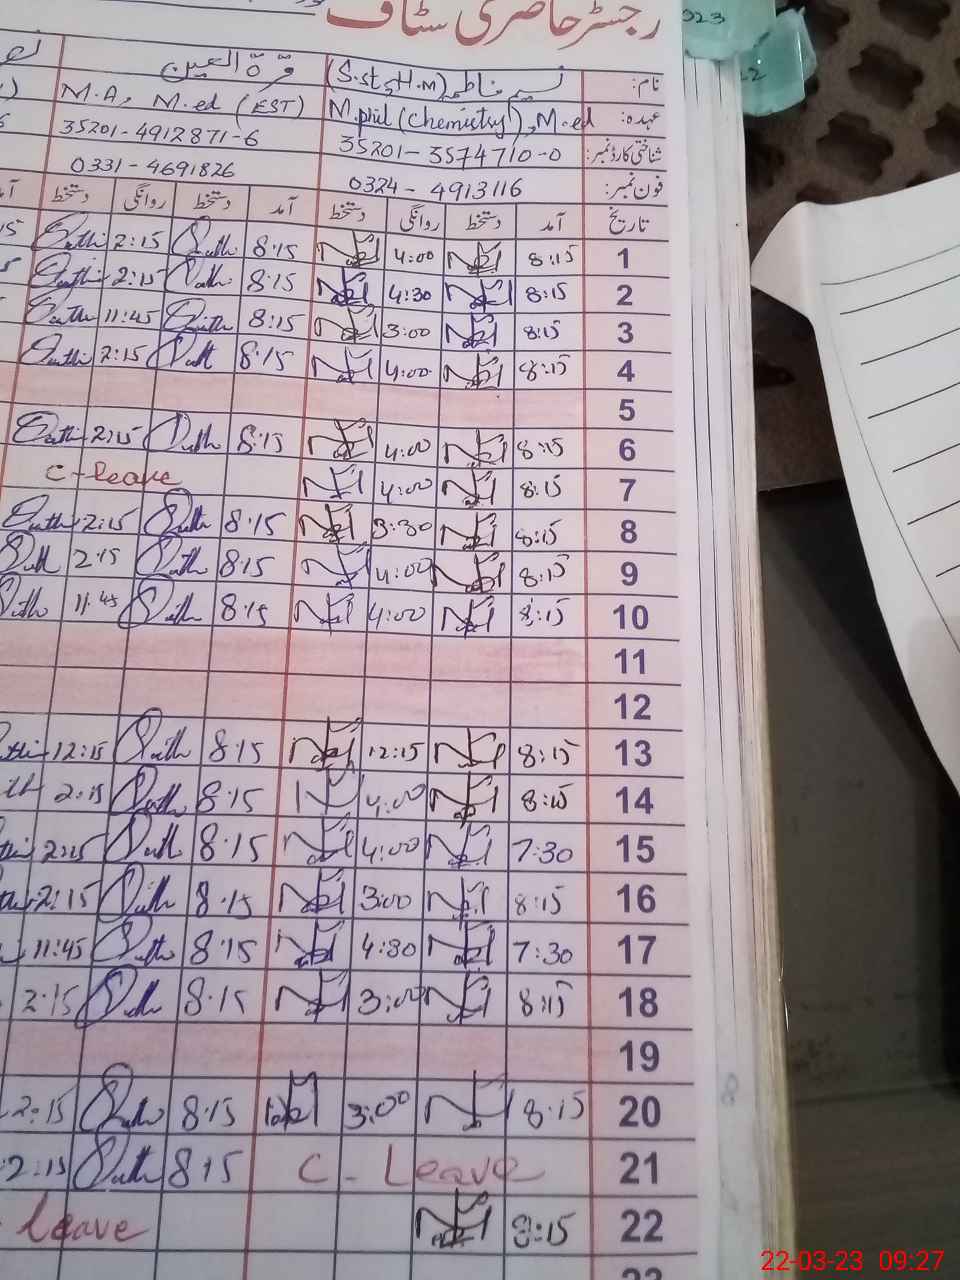 رجسٹر حاضری سٹاف
023
نام: نسیم فاطمہ (S.st, H.M) قرۃ العین
عہدہ: M.phil (chemistry), M.ed M.A, M.ed (EST)
شناختی کارڈ نمبر: 35201-3574710-0 35201-4912871-6
فون نمبر: 0324-4913116 0331-4691826
تاریخ آمد دستخط روانگی دستخط آمد دستخط روانگی دستخط
1 8:15 4:00 8:15 2:15
2 8:15 4:30 8:15 2:15
3 8:15 3:00 8:15 11:45
4 8:15 4:00 8:15 2:15
5
6 8:15 4:00 8:15 2:15
7 8:15 4:00 C-leave
8 8:15 3:30 8:15 2:15
9 8:15 4:00 8:15 2:15
10 8:15 4:00 8:15 11:45
11
12
13 8:15 12:15 8:15 12:15
14 8:15 4:00 8:15 2:15
15 7:30 4:00 8:15 2:15
16 8:15 3:00 8:15 2:15
17 7:30 4:30 8:15 11:45
18 8:15 3:00 8:15 2:15
19
20 8:15 3:00 8:15 2:15
21 C-Leave 8:15 2:15
22 8:15 leave
22-03-23 09:27